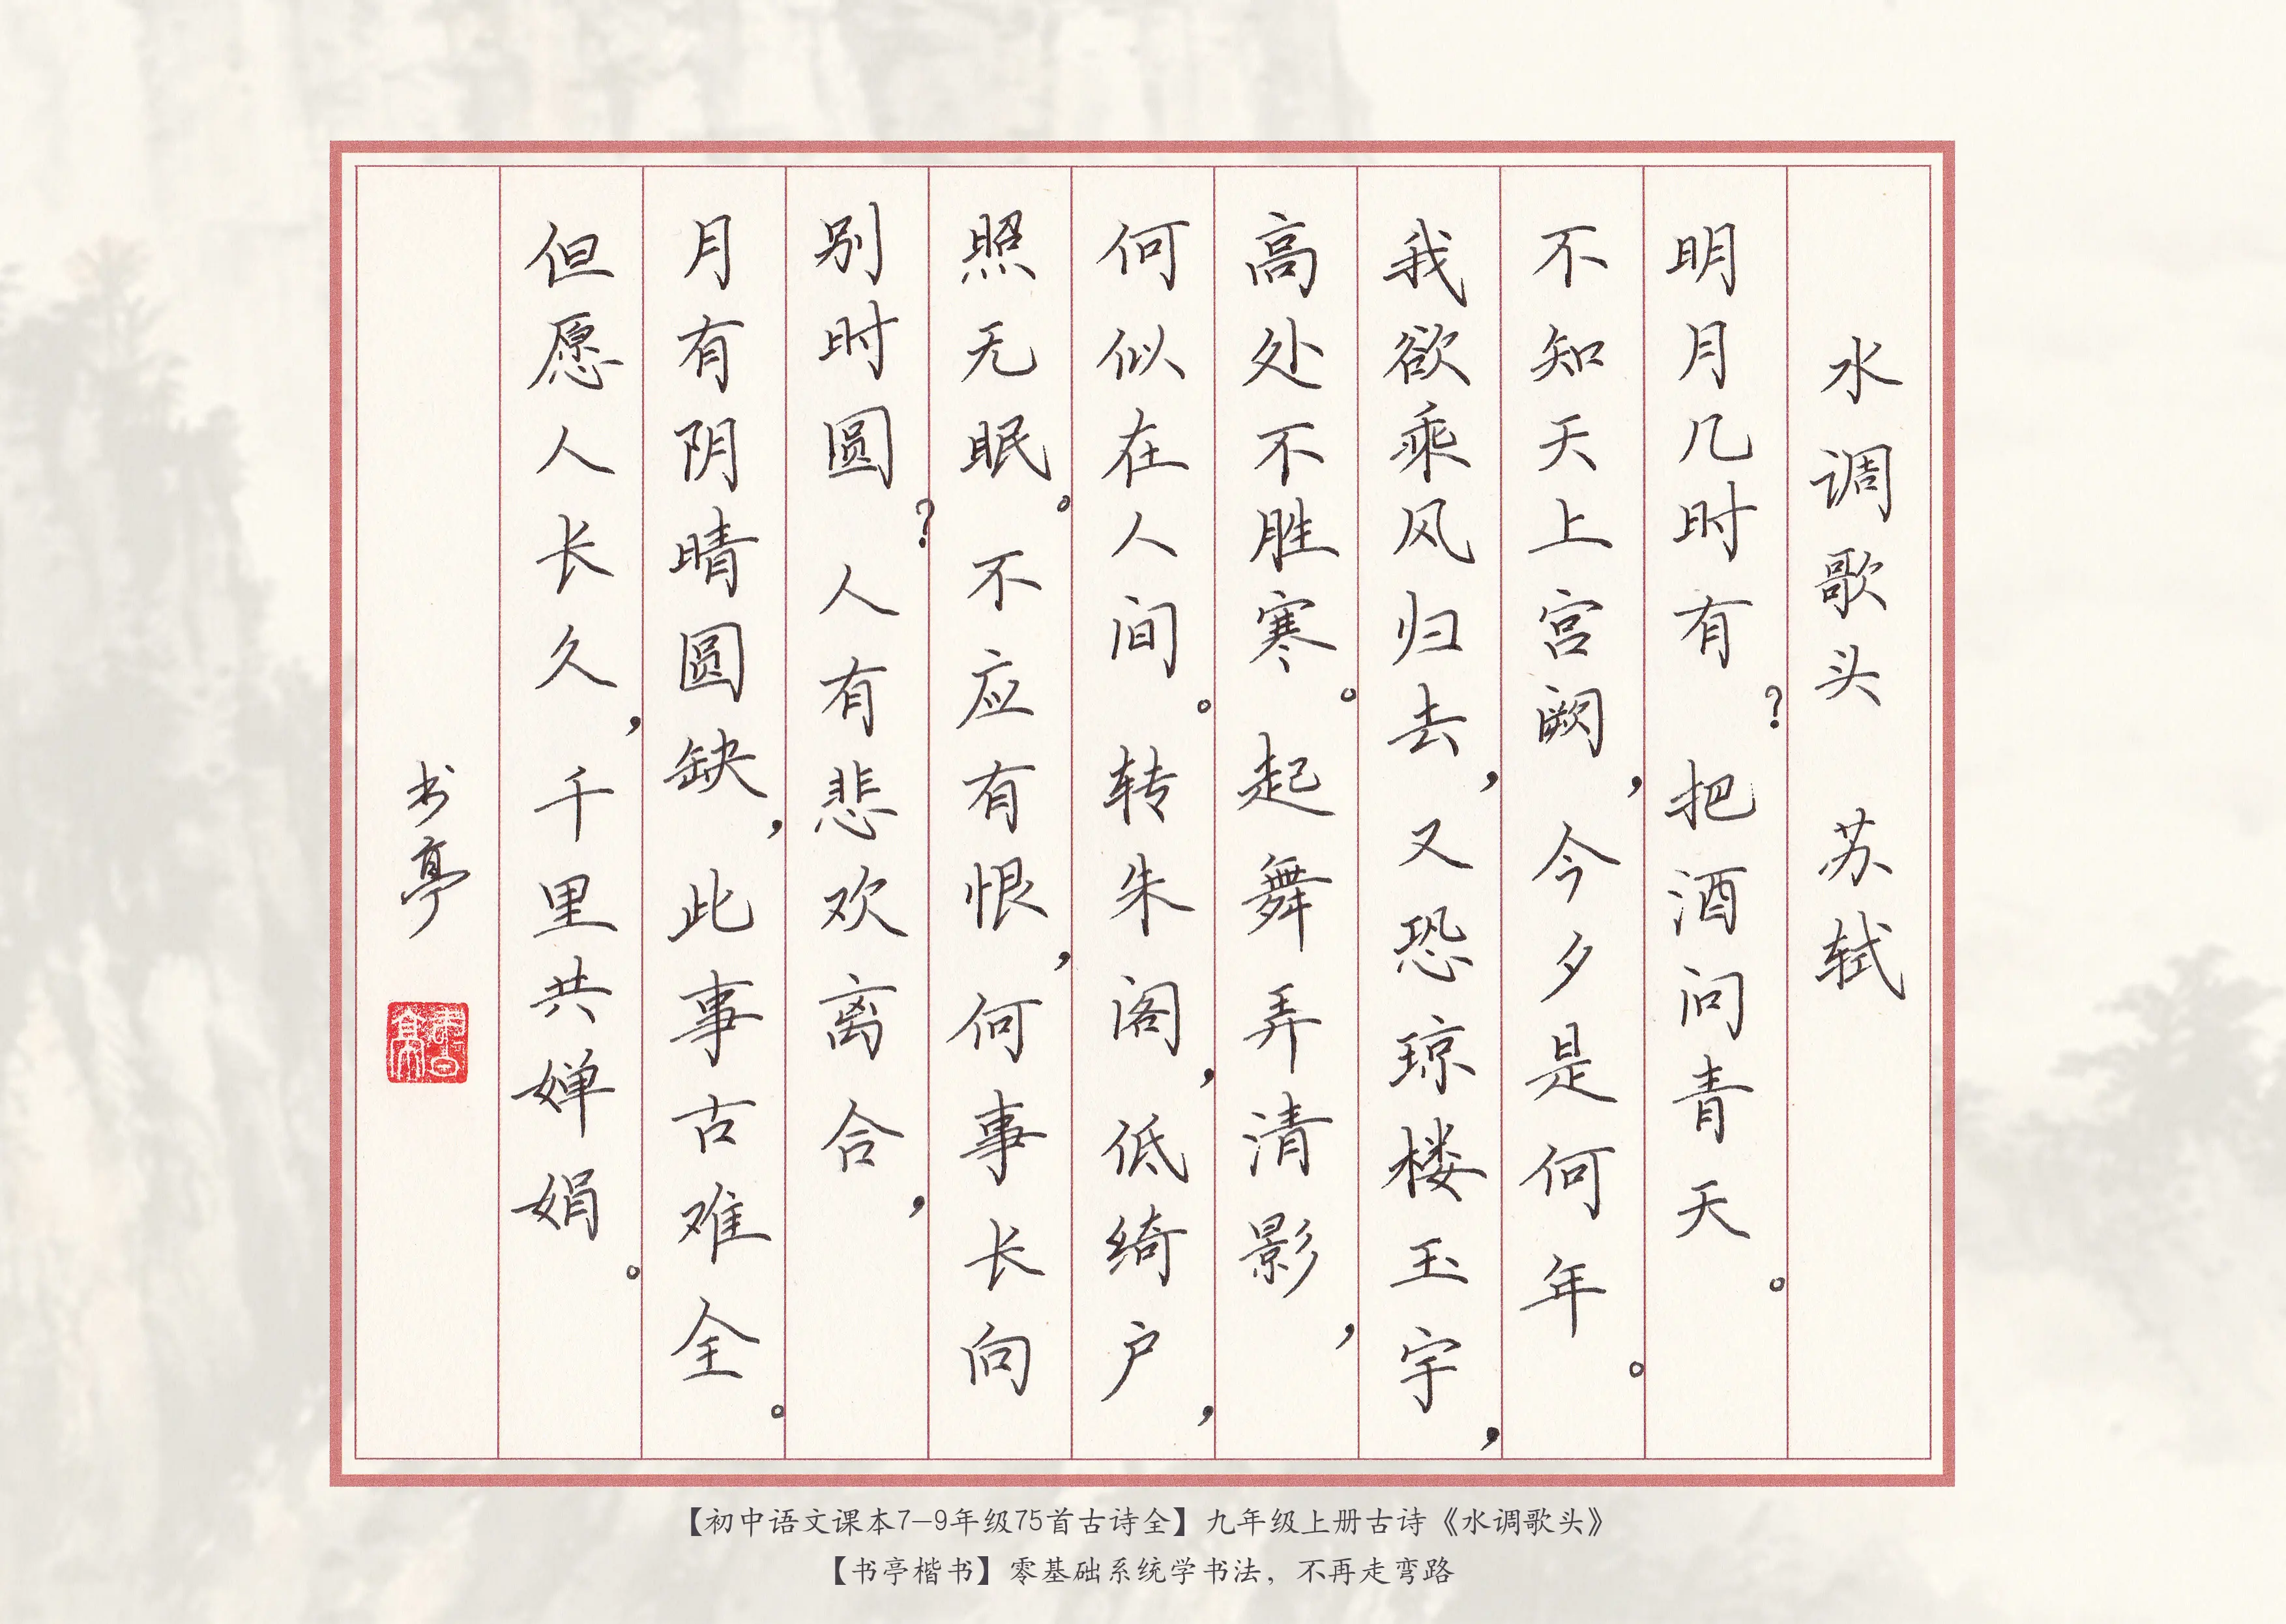 水调歌头 苏轼
明月几时有？把酒问青天。
不知天上宫阙，今夕是何年。
我欲乘风归去，又恐琼楼玉宇，
高处不胜寒。起舞弄清影，
何似在人间。转朱阁，低绮户，
照无眠。不应有恨，何事长向
别时圆？人有悲欢离合，
月有阴晴圆缺，此事古难全。
但愿人长久，千里共婵娟。
书亭
書亭
【初中语文课本7-9年级75首古诗全】九年级上册古诗《水调歌头》
【书亭楷书】零基础系统学书法，不再走弯路